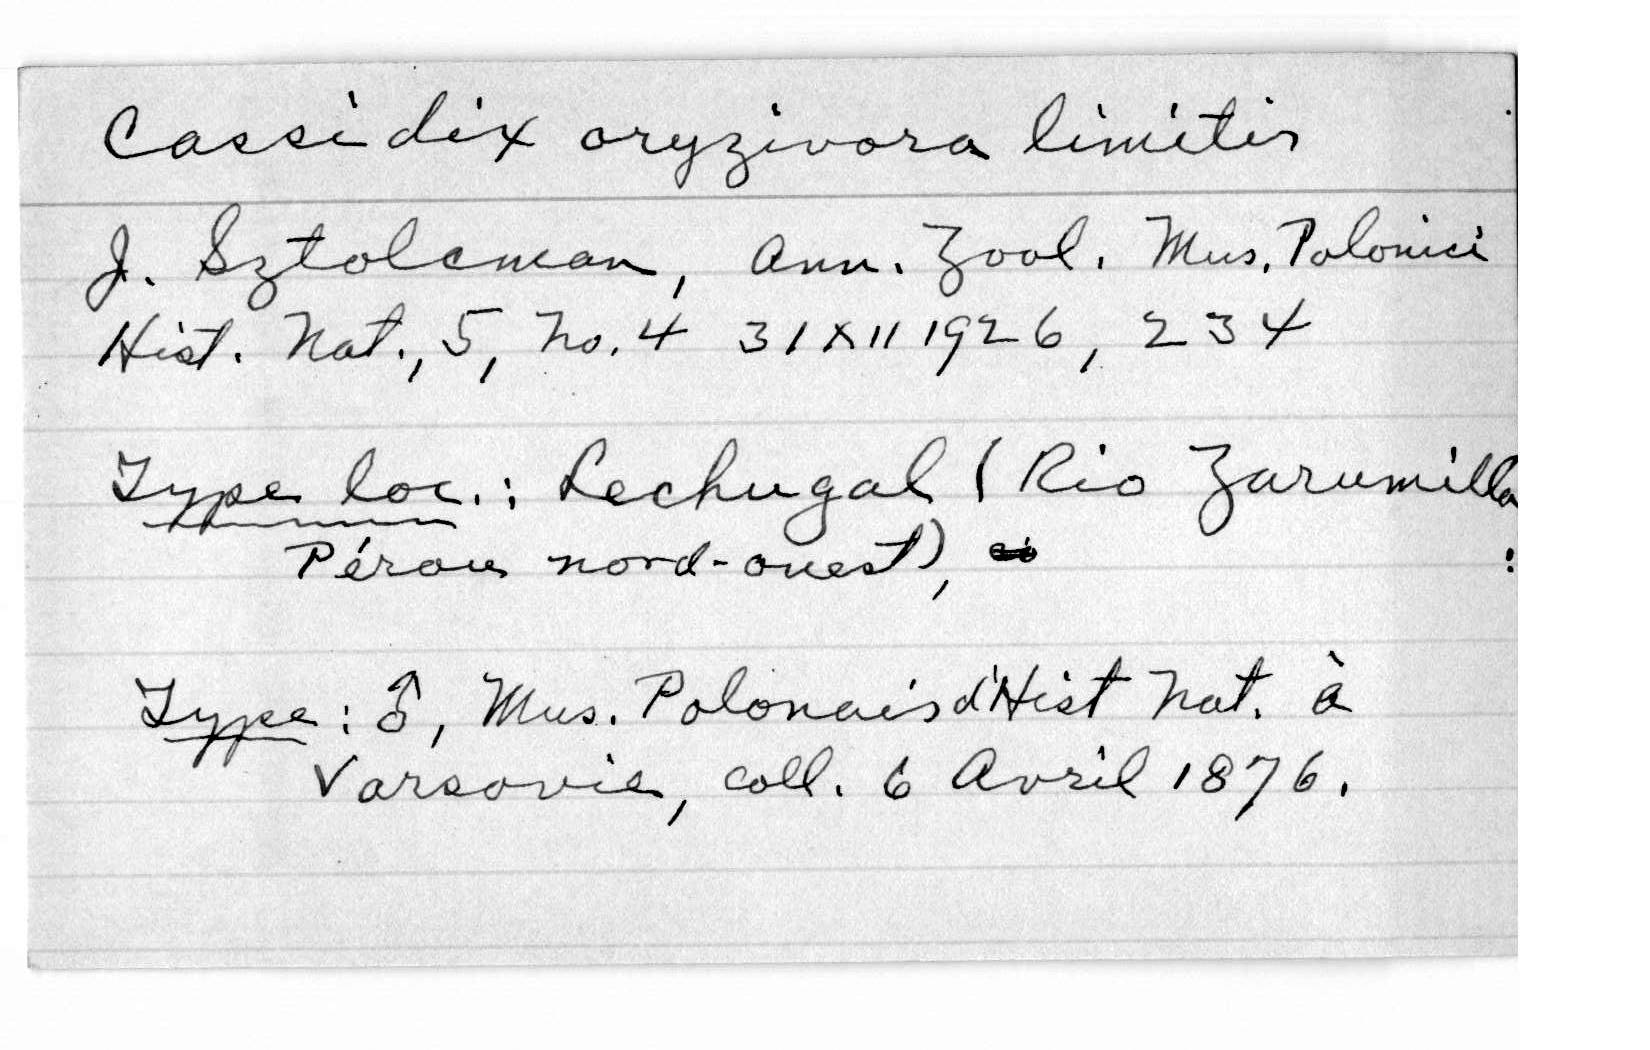 Cassidix oryzivora limitis
J. Sztolcman, Ann. Zool. Mus. Polonici
Hist. Nat., 5, no. 4 31 XII 1926, 234
Type loc.: Lechugal (Rio Zarumilla
Pérou nord-ouest),
Type: ♂, Mus. Polonais d'Hist Nat. à
Varsovie, coll. 6 Avril 1876.